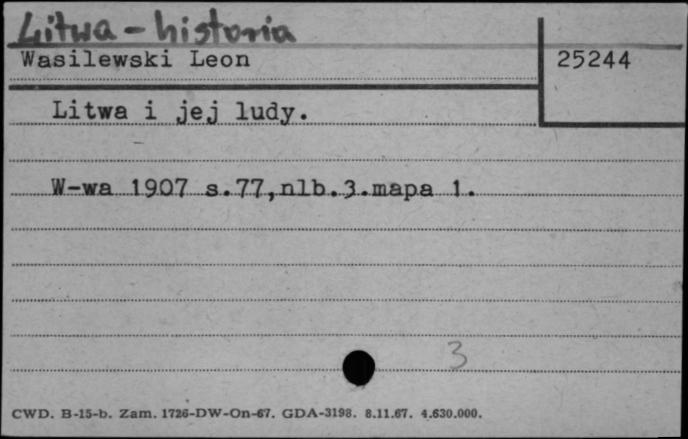 Litwa - historia
Wasilewski Leon
25244
Litwa i jej ludy.
W-wa 1907 s.77,nlb.3.mapa 1.
3
CWD. B-15-b. Zam. 1726-DW-On-67. GDA-3198. 8.11.67. 4.630.000.